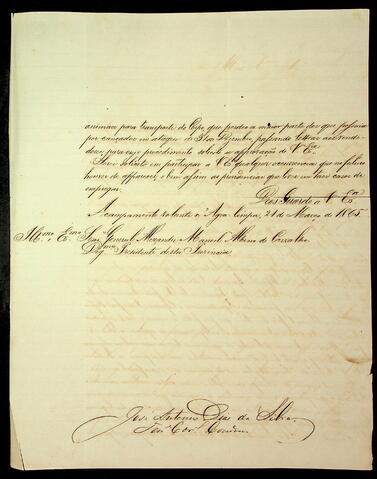 animaes para transporte do Corpo, que perdeu a maior parte dos que possuia
por cançados na viagem de Dezembro, passando a
para cujo procedimento solicito a approvação de V Ex.cia
Serei solicito em participar a V Ex qualquer occurrencia que no futuro
houver de apparecer, e bem assim as providencias que em taes casos
empregar.
Deos Guarde a V Ex.cia
Acampamento volante n' Agua limpa, 21 de Março de 1865.
Ill.mo e Ex.mo Snr General Alexandre Manoel Albino de Carvalho.
Dig.mo Presidente desta Provincia
José Antonio Dias da Silva
Ten.e Cor.el Comm.